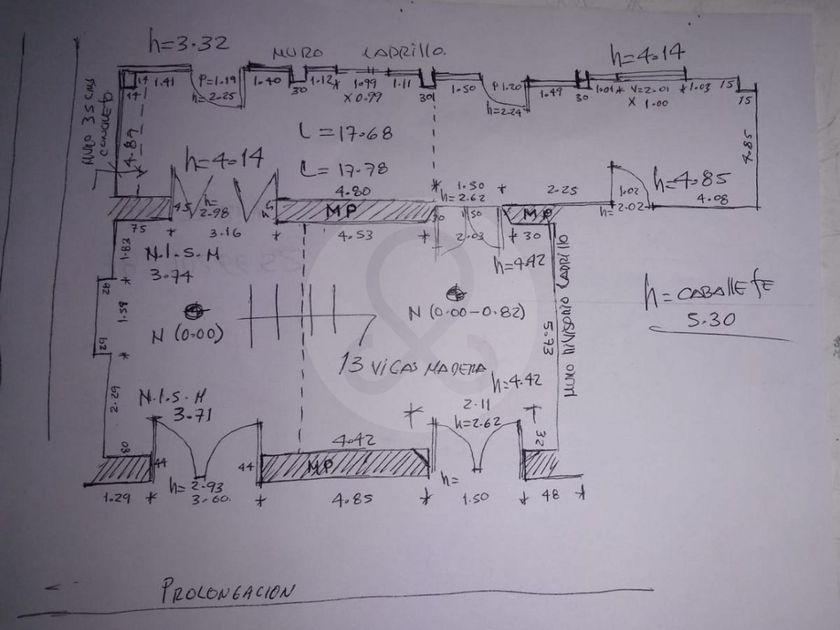 h=3.32
MURO LADRILLO.
h=4.14
14
1.41
P=1.19
h=2.25
1.40
30
1.12
1.99
x 0.99
1.11
30
1.50
P 1.20
h=2.24
1.49
30
1.01
V=2.01
x 1.00
1.03
15
15
14
MURO 35 cms
4.89
L = 17.68
h=4.14
L = 17.78
4.85
4.80
1.50
h=2.62
2.25
1.02
h=2.02
h=4.85
4.08
45
h=
2.98
MP
MP
75
3.16
4.53
50
2.03
30
N.I.S.M
3.74
1.83
h=4.42
MURO DIVISORIO LADRILLO
h= CABALLETE
5.30
1.59
N (0.00)
N (0.00-0.82)
5.73
13 VIGAS MADERA
N.I.S.M
3.71
2.29
h=4.42
2.11
h=2.62
4.42
32
44
44
MP
h=
2.93
3.60.
h=
1.29
4.85
1.50
48
PROLONGACION